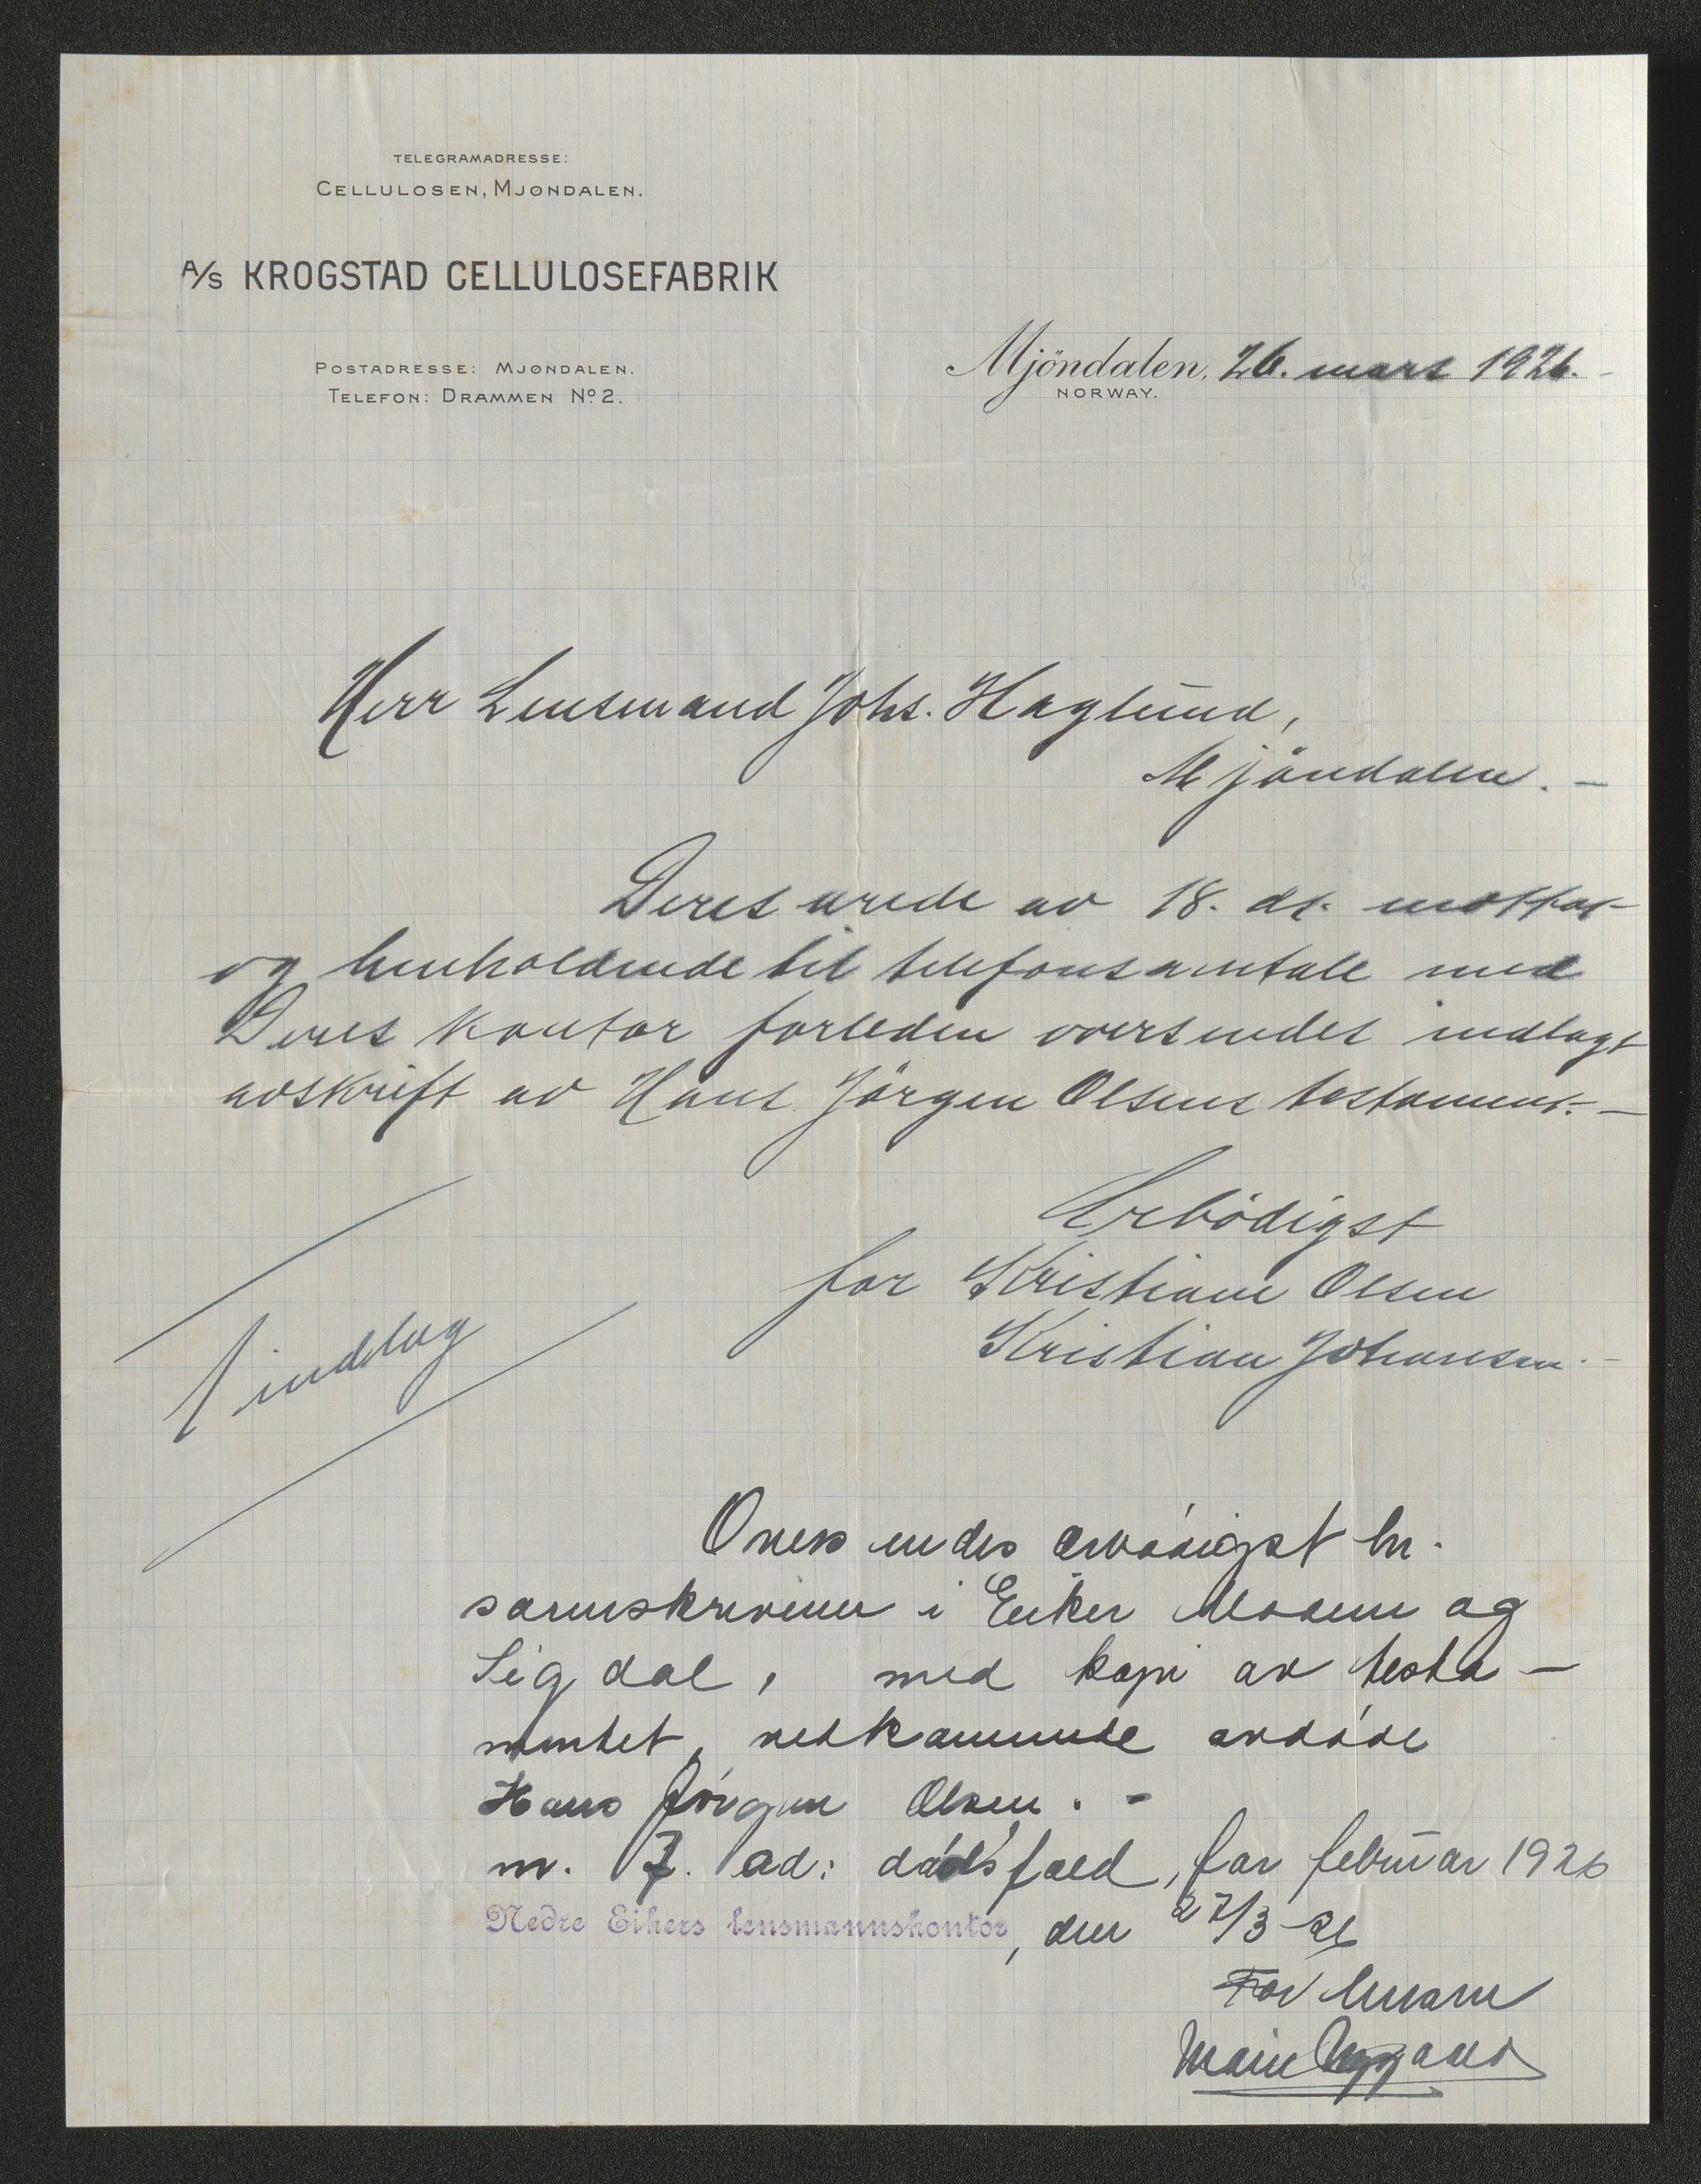 TELEGRAMADRESSE:
CELLULOSEN, MJØNDALEN.
A/S KROGSTAD CELLULOSEFABRIK
POSTADRESSE: MJØNDALEN.
TELEFON: DRAMMEN No. 2.
Mjöndalen, 26. mars 1926.-
NORWAY.
Herr Lensmand Johs. Haglund,
Mjöndalen.-
Deres ærede av 18. ds. mottat
og henholdende til telefonsamtale med
Deres kontor forleden oversendes indlagt
avskrift av Hans Jörgen Olsens testament.-
Ærbödigst
for Kristiane Olsen
Kristian Johansen.-
1 indlag
Oversendes ærbödigst hr.
sorenskriveren i Eiker Modum og
Sigdal, med kopi av testa-
mentet, vedkommende avdöde
Hans Jörgen Olsen.-
nr. 7. ad: dödsfald, for februar 1926
Nedre Eikers lensmannskontor, den 27/3-26
For lensm
Marie